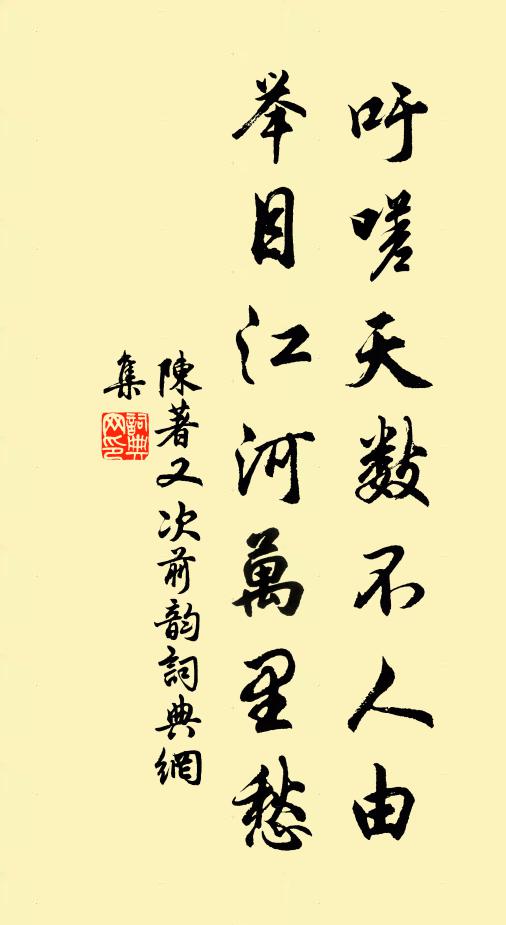 吁嗟天数不人由
举目江河萬里愁
陳著又次前韵詞典網
集
詞典
网印